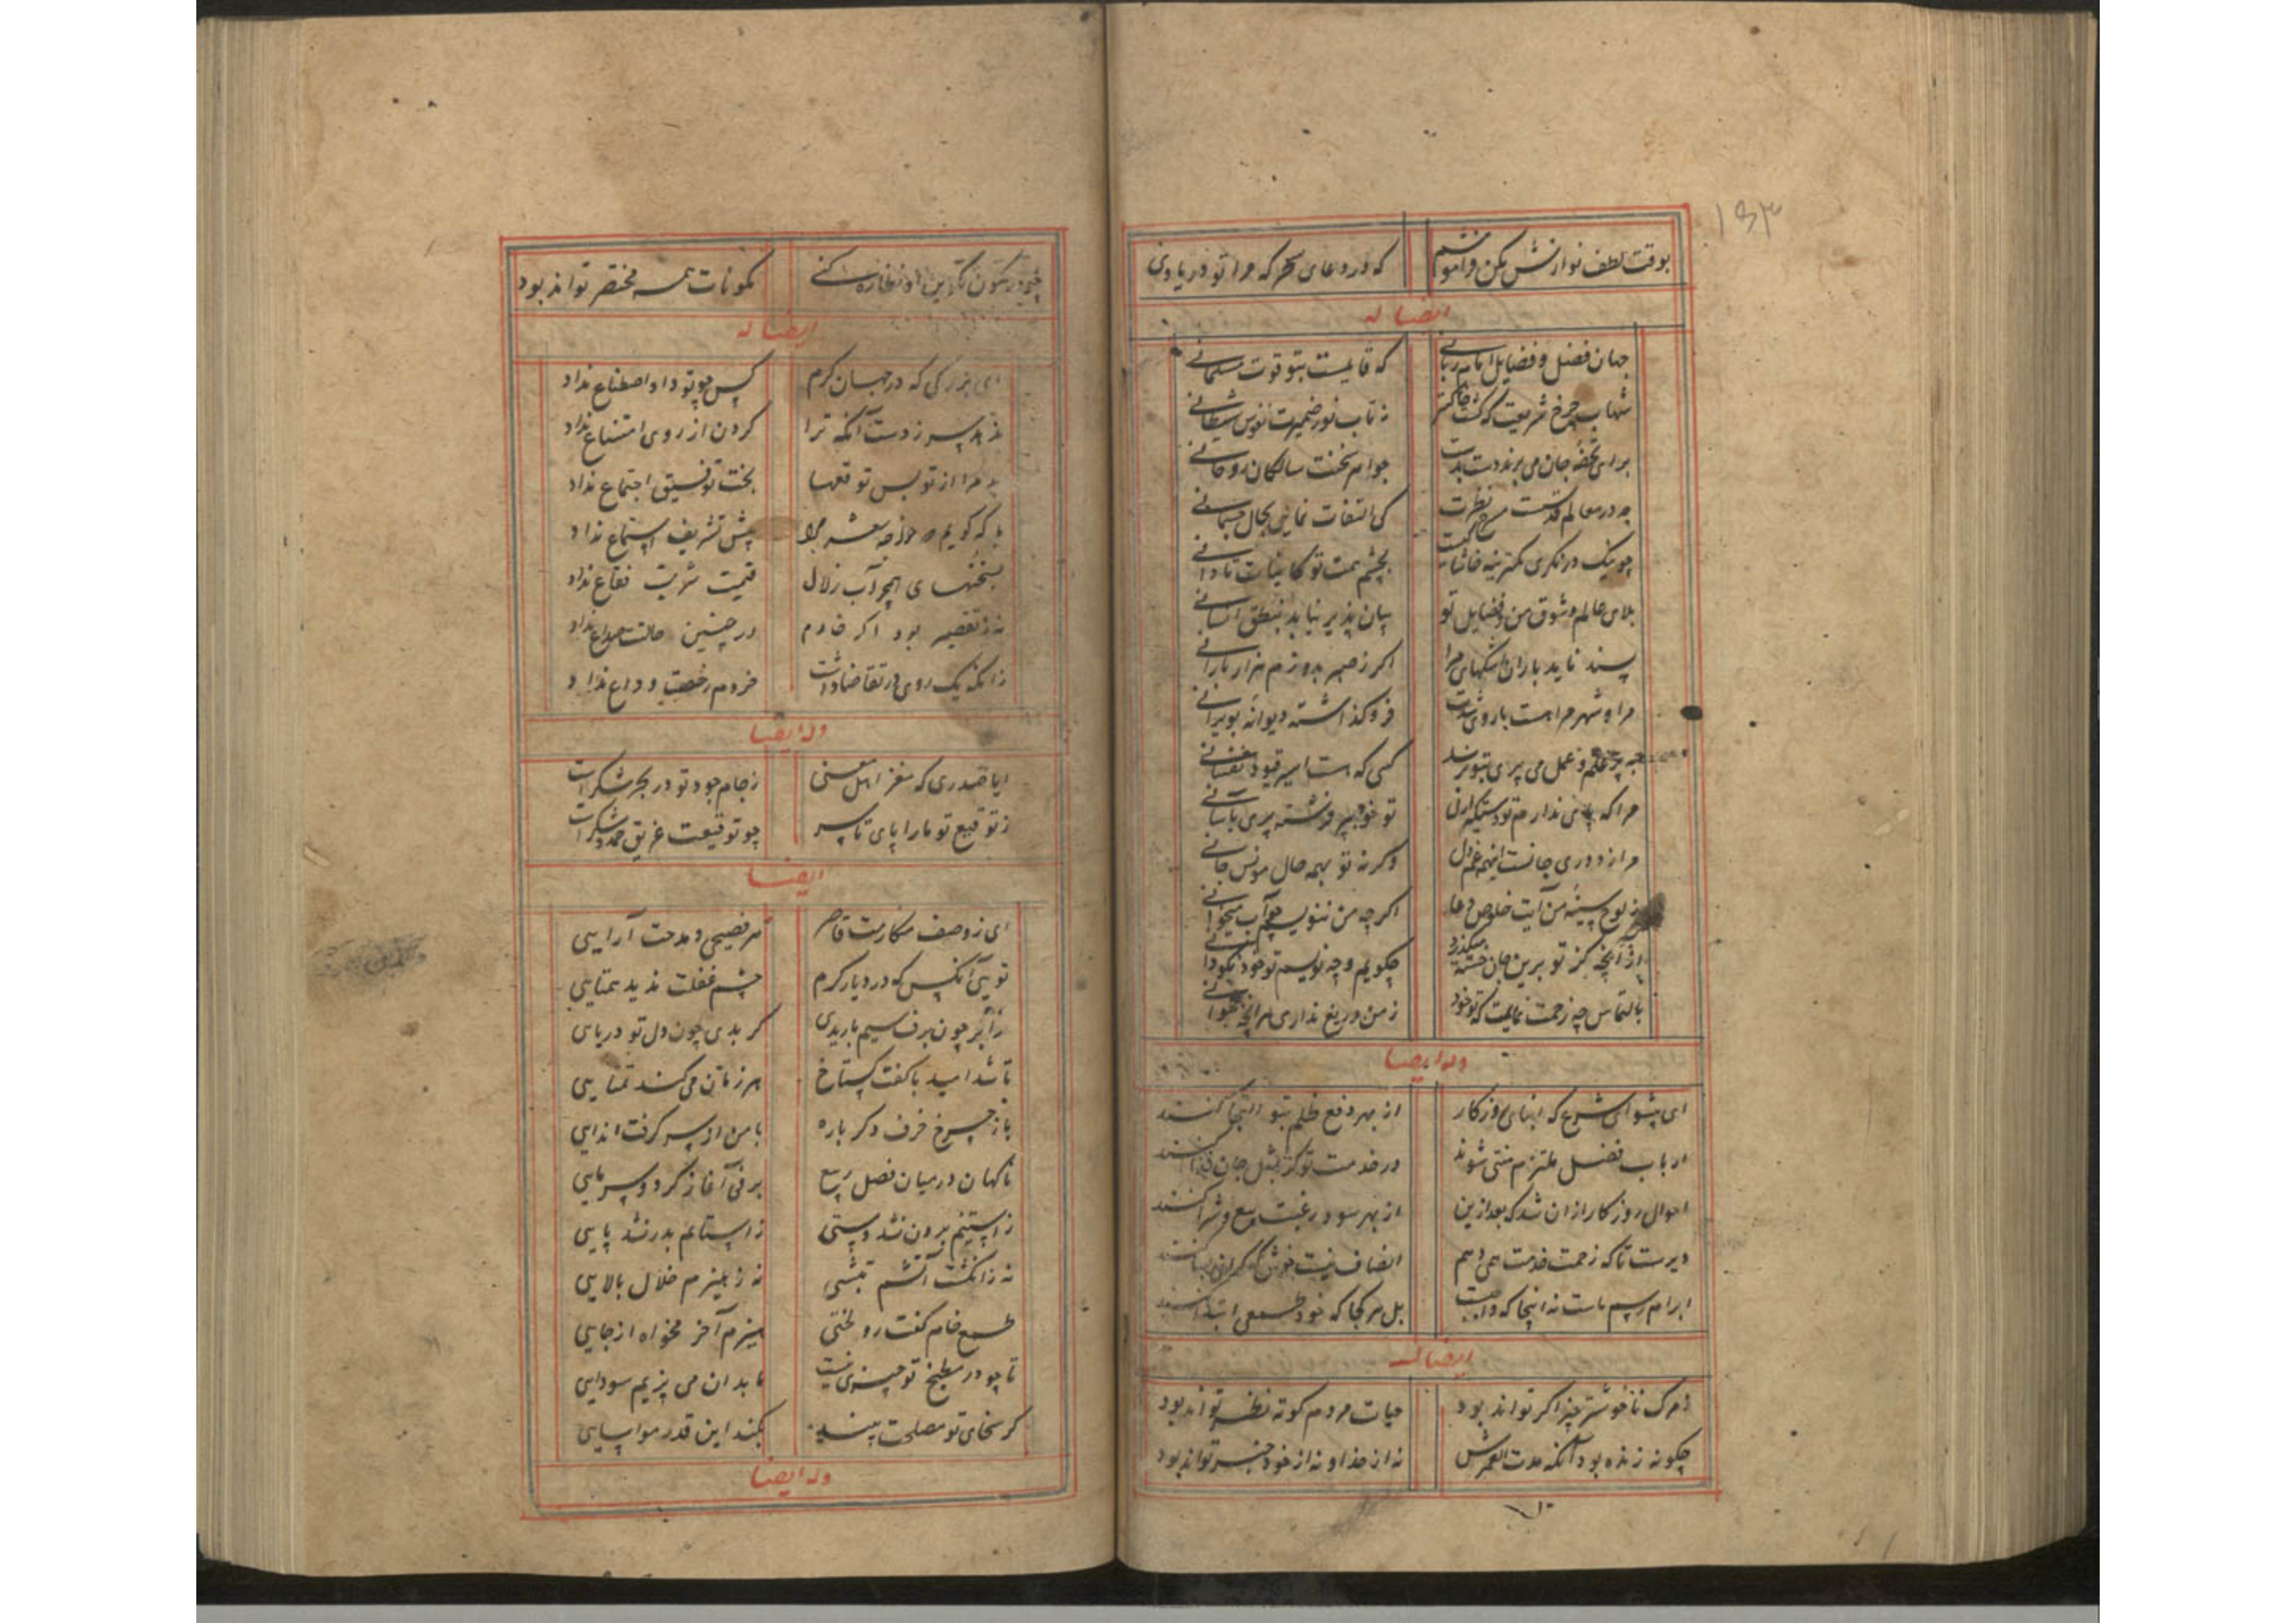 ۱۵۳
بوقت لطف نوازش مکن فراموشم که در دعای سحرکه مرا تو در یادی
ایضا له
جهان فضل و فضایل امام ربانی که قایمست بتو قوت مسلمانی
شهاب چرخ شریعت که کشت خاکستر ز تاب نور ضمیرت نفوس شیطانی
برای تحفه جان می برند دست بدست جواهر سخنت سالکان روحانی
چو در معالم قدست مسرح نظرت کی التفات نمایی بحال جسمانی
چو نیک درنکری کمترینه خاشاکیست بچشم همت تو کاینات تا دانی
بلای عالم و شوق من و فضایل تو بیان پذیر نیاید بنطق انسانی
پسند ناید باران اشکهای مرا اکر ز صبر بدوزم هزار بارانی
مرا و شهر مرا هست با رو شدت فرو کذاشته دیوانه بویرانی
چه پر علم و عمل می پری بتو نرسد کسی که هست اسیر قیود نفسانی
مرا که پای ندارم تو دستکیر ارنی تو خود بپر فرشته پری بآسانی
مرا ز دوری جانست اینهمه غم دل وکرنه تو بهمه حال مونس جانی
ز لوح سینه من آیت خلوص دعا اکرچه من ننویسم چو آب میخوانی
از آنچه کز تو برین جان خسته میکذرد چکویم و چه نویسم تو خود نکو دانی
بالتماس چه زحمت نمایمت که تو خود ز من دریغ نداری هر آنچه بتوانی
وله ایضا
ای پیشوای شرع که ابنای روزکار از بهر دفع ظلم بتو التجا کنند
ارباب فضل ملتزم منتی شوند در خدمت تو کر بمثل جان فدا کنند
احوال روزکار از ان شد که بعد ازین از بهر سود رغبت بیع و شرا کنند
دیرست تا که زحمت خدمت همی دهم انصاف نیست خوش
ابرام رسم ماست نه اینجا که واجبست بل هر کجا که خود طمعی ابتدا کنند
ایضا له
ز مرک ناخوشتر چیز اکر تواند بود حیات مردم کوته نظر تواند بود
چکونه زنده بود آنکه مدت العمرش نه از خدا و نه از خود خبر تواند بود
چو در مکونات همه مختصر تواند بود
ایضا له
ای بزرکی که در جهان کرم کس چو تو داد اصطناع نداد
سر ز دست آنکه ترا کردن از روی امتناع نداد
مرا از تو بس توقعها بخت توفیق اجتماع نداد
با که کویم که خواجه شعر مرا پیش تشریف استماع نداد
بسخنهای همچو آب زلال قیمت شربت فقاع نداد
نه ز تقصیر بود اکر خادم در چنین حالت صداع نداد
زانکه یک روی در تقاضا داشت خردم رخصت وداع نداد
وله ایضا
ایا صدری که مغز اهل معنی ز جام جود تو در بحر شکرست
ز توقیع تو ما را پای تا سر چو توقیعت غریق حمد و شکرست
ایضا
ای ز وصف مکارمت قاصر هر فصیحی و مدحت آرایی
تویی آنکس که در دیار کرم چشم غفلت ندید همتایی
ز ابر چون برف سیم باریدی کر بدی چون دل تو دریایی
تا شد امید با کفت کستاخ هر زمان می کند تمنایی
باز چرخ خرف دکر باره با من از سر کرفت ایذایی
ناکهان در میان فصل ربیع برفی آغاز کرد و سرمایی
ز استینم برون نشد دستی ز استانم بدر نشد پایی
نه ز انکشت آتشم تبشی نه ز هیزم خلال بالایی
طمع خام کفت رو لختی هیزم آخر بخواه از جایی
تا چو در مطبخ تو چیزی نیست ما بدان می پزیم سودایی
کر سخای تو مصلحت بیند بکند این قدر مواسایی
وله ایضا